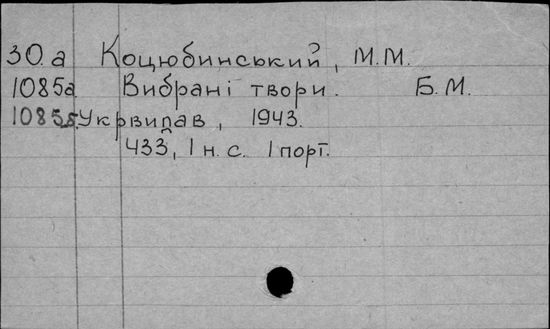 30.а Коцюбинський, М.М.
1085а Вибрані твори. Б.М.
1085б. Укрвидав, 1943.
433, 1 н. с. 1 порт.